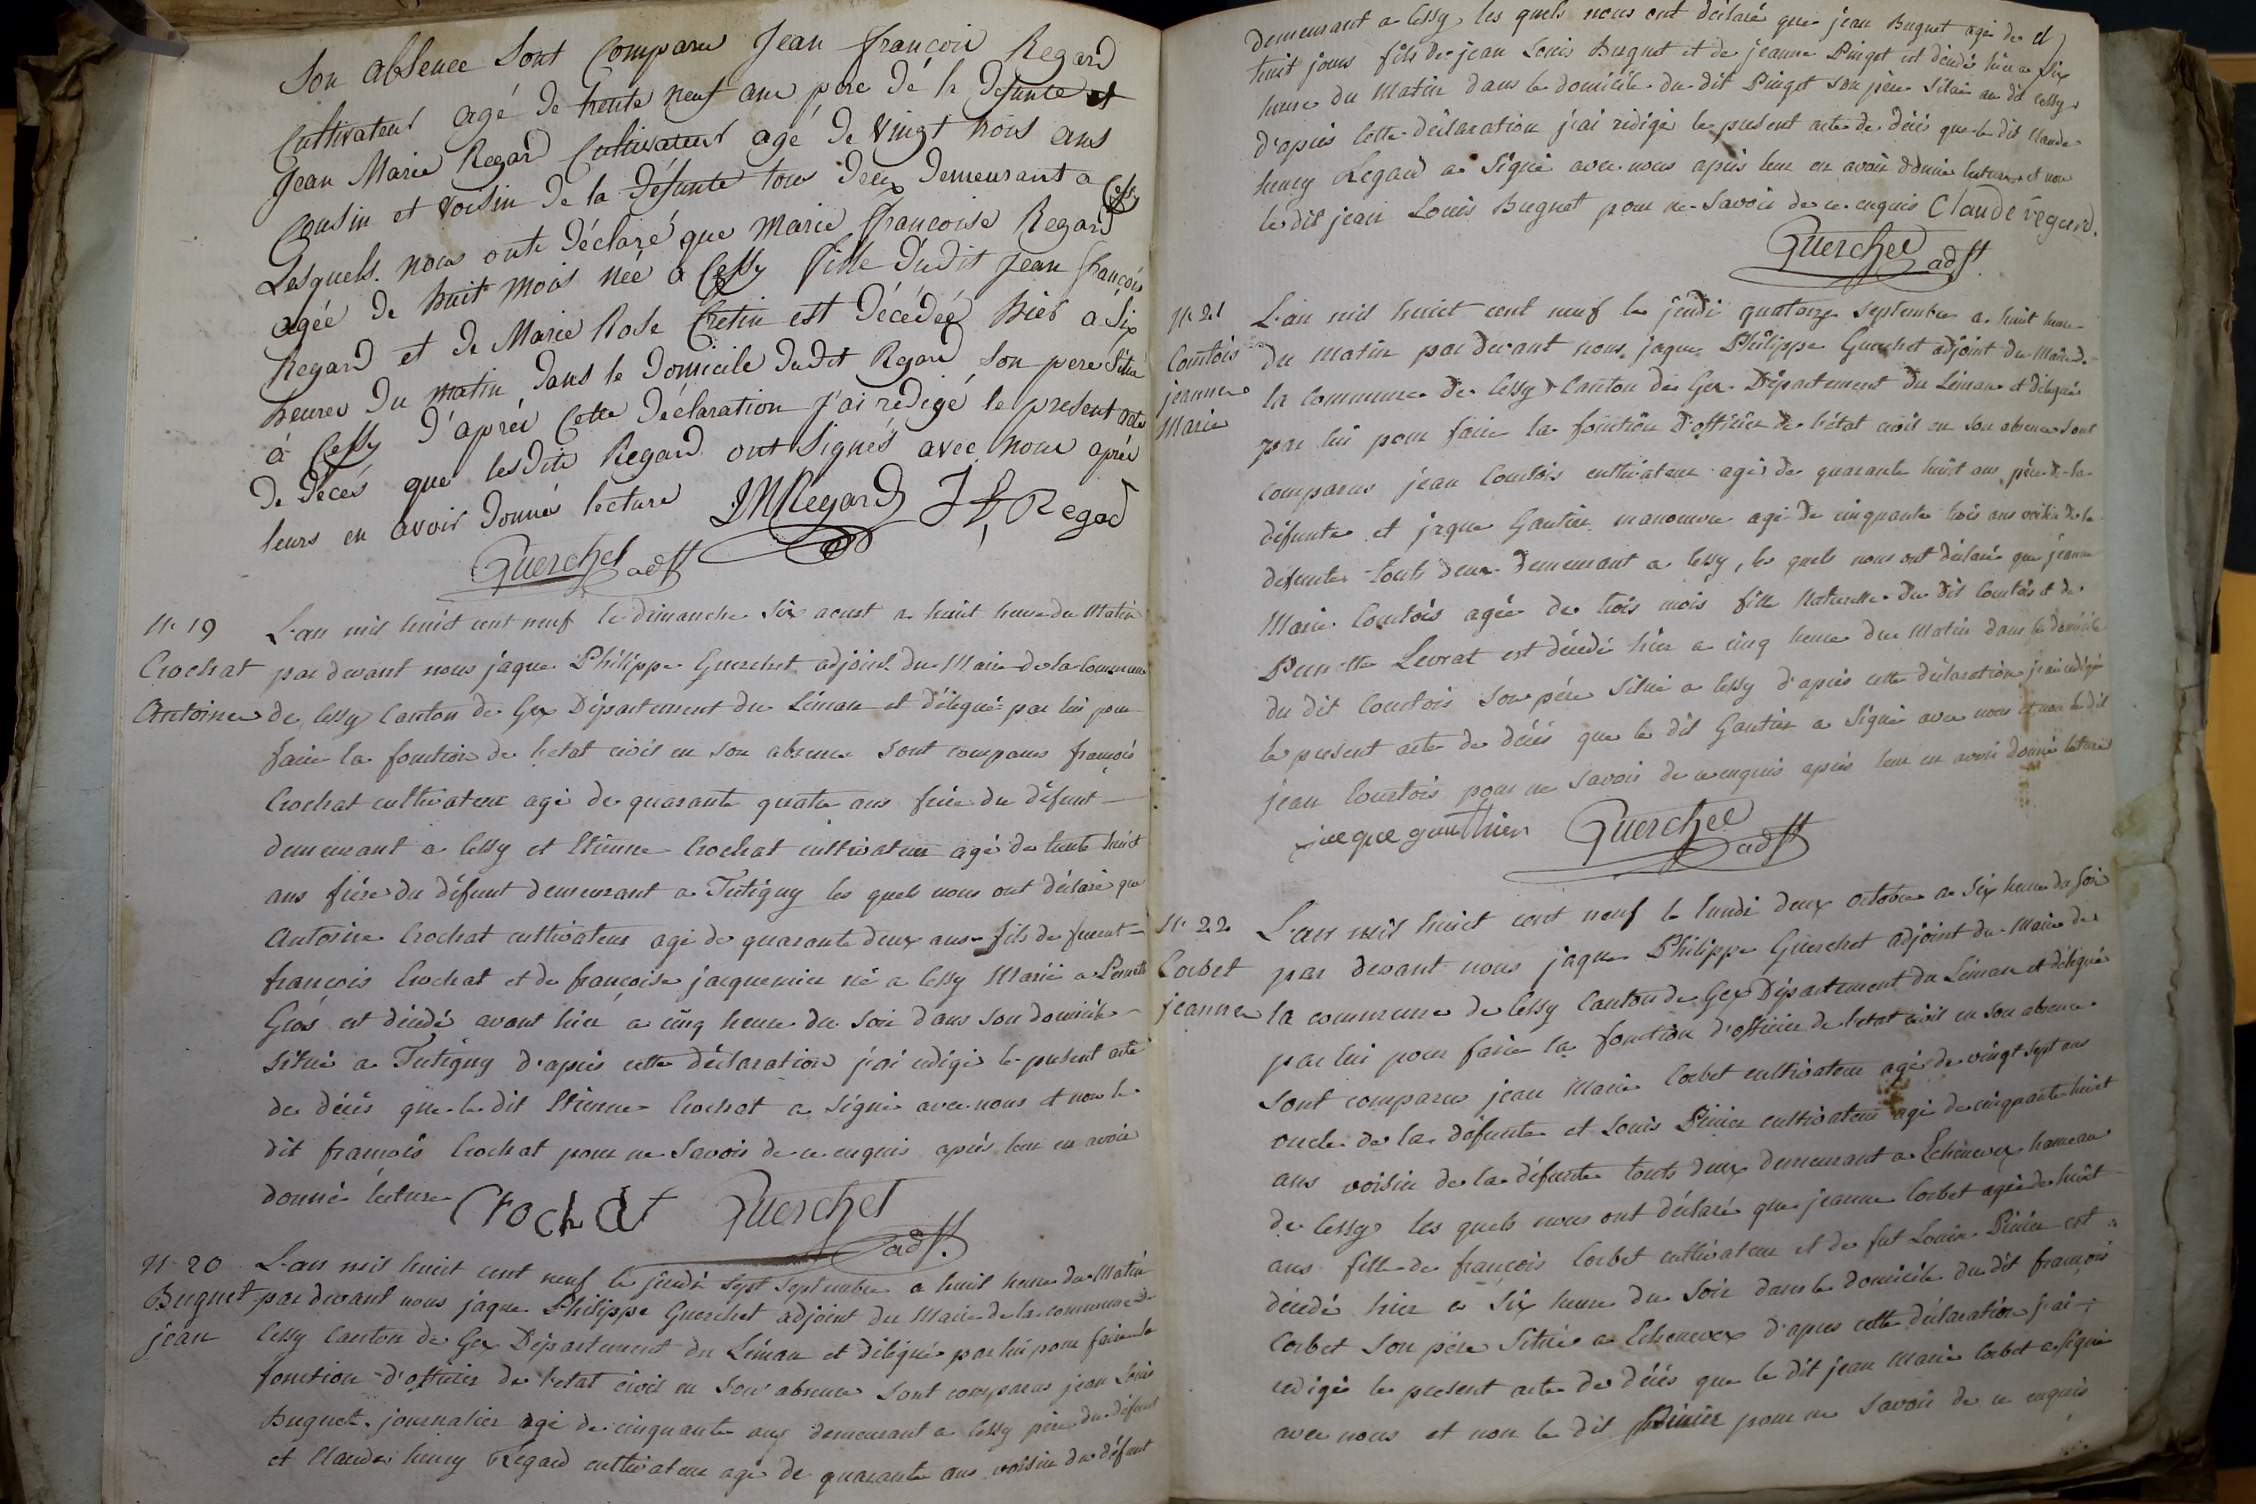 Son absence Sont Comparu Jean françois Regard
Cultivateur agé de trente neuf ans pere de la défunte et
Jean Marie Regard Cultivateur agé de Vingt trois ans
Cousin et Voisin de la défunte tous deux demeurant a Cessy
Lesquels nous onts déclaré que Marie françoise Regard
agée de huit mois née a Cessy fille dudit Jean françois
Regard et de Marie Rose Cretin est décédée hier a Six
heures du matin dans le domicile dudit Regard Son pere Situé
à Cessy d'aprés Cette déclaration j'ai redigé le present acte
de décés que lesdits Regard ont Signés avec nous aprés
leurs en avoir donné lecture JMRegard J f Regad
Guerchet adjt
N. 19
Crochat
Antoine
L'an mil huict cent neuf le dimanche Six aoust a huit heure du Matin
par devant nous jaque Philippe Guerchet adjoint du Maire de la Commune
de Cessy Canton de Gex Département du Léman et délégué par lui pour
faire la fonction de l'etat civil en son absence sont comparus françois
Crochat cultivateur agé de quarante quatre ans frère du défunt
demeurant a Cessy et Etienne Crochat cultivateur agé de trente huict
ans frère du défunt demeurant a Tutigny les quels nous ont déclaré que
Antoine Crochat cultivateur agé de quarante deux ans fils de
françois Crochat et de françoise jacquemier né a Cessy Marié a Pernette
Gros est décédé avant hier a cinq heure du soir dans son domicile
situé a Tutigny d'après cette déclaration j'ai redigé le présent acte
de décés que le dit Etienne Crochat a signé avec nous et non le
dit françois Crochat pour ne savoir de ce enquis après leur en avoir
donné lecture Crochat Guerchet
adjt.
N. 20
Buguet
jean
L'an mil huict cent neuf le jeudi sept septembre a huit heure du Matin
par devant nous jaque Philippe Guerchet adjoint du Maire de la commune de
Cessy Canton de Gex Département du Léman et délégué par lui pour faire la
fonction d'officier de l'etat civil en son absence sont comparus jean Louis
Buguet journalier agé de cinquante ans demeurant a Cessy père du défunt
et Claude henry Regard cultivateur agé de quarante ans voisin du défunt
demeurant a Cessy, les quels nous ont déclaré que jean Buguet agé de
huit jours fils de jean Louis Buguet et de jeanne Pinget est décédé hier a six
heure du Matin dans le domicile du dit Pinget son père Situé au dit Cessy
d'après cette déclaration j'ai redigé le present acte de décés que le dit Claude
henry Regard a Signé avec nous après leur en avoir donné lecture et non
le dit jean Louis Buguet pour ne savoir de ce enquis Claude regard.
Guerchet adjt.
N. 21
Courtois
jeanne
Marie
L'an mil huict cent neuf le jeudi quatorze Septembre a huit heure
du matin par devant nous jaque Philippe Guerchet adjoint du Maire de
la commune de Cessy Canton de Gex Département du Léman et délégué
par lui pour faire la fonction d'officier de l'état civil en son absence sont
comparus jean Courtois cultivateur agé de quarante huit ans père de la
défunte et jaque Gautier manoeuvre agé de cinquante trois ans voisin de la
défunte touts deux demeurant a Cessy, les quels nous ont déclaré que jeanne
Marie Courtois agée de trois mois fille Naturelle du dit Courtois et de
Pernette Levrat est décédé hier a cinq heure du Matin dans le domicile
du dit Courtois son père Situé a Cessy d'après cette déclaration j'ai redigé
le present acte de décés que le dit Gautier a Signé avec nous et non le dit
jean Courtois pour ne savoir de ce enquis après leur en avoir donné lecture
jaque gauthier Guerchet
adjt
N. 22
Corbet
jeanne
L'an mil huict cent neuf le lundi deux octobre a six heure du soir
par devant nous jaque Philippe Guerchet adjoint du Maire de
la commune de Cessy Canton de Gex Département du Léman et délégué
par lui pour faire la fonction d'officier de l'etat civil en son absence
sont comparus jean Marie Corbet cultivateur agé de vingt sept ans
oncle de la défunte et Louis Pinier cultivateur agé de cinquante huit
ans voisin de la défunte touts deux demeurant a Echenevex hameau
de Cessy les quels nous ont déclaré que jeanne Corbet agée de huit
ans fille de françois Corbet cultivateur et de fut Louise Pinier est
décédé hier a six heure du soir dans le domicile du dit françois
Corbet son père Situé a Echenevex d'après cette déclaration j'ai
redigé le present acte de décés que le dit jean Marie Corbet a signé
avec nous et non le dit Pinier pour ne savoir de ce enquis